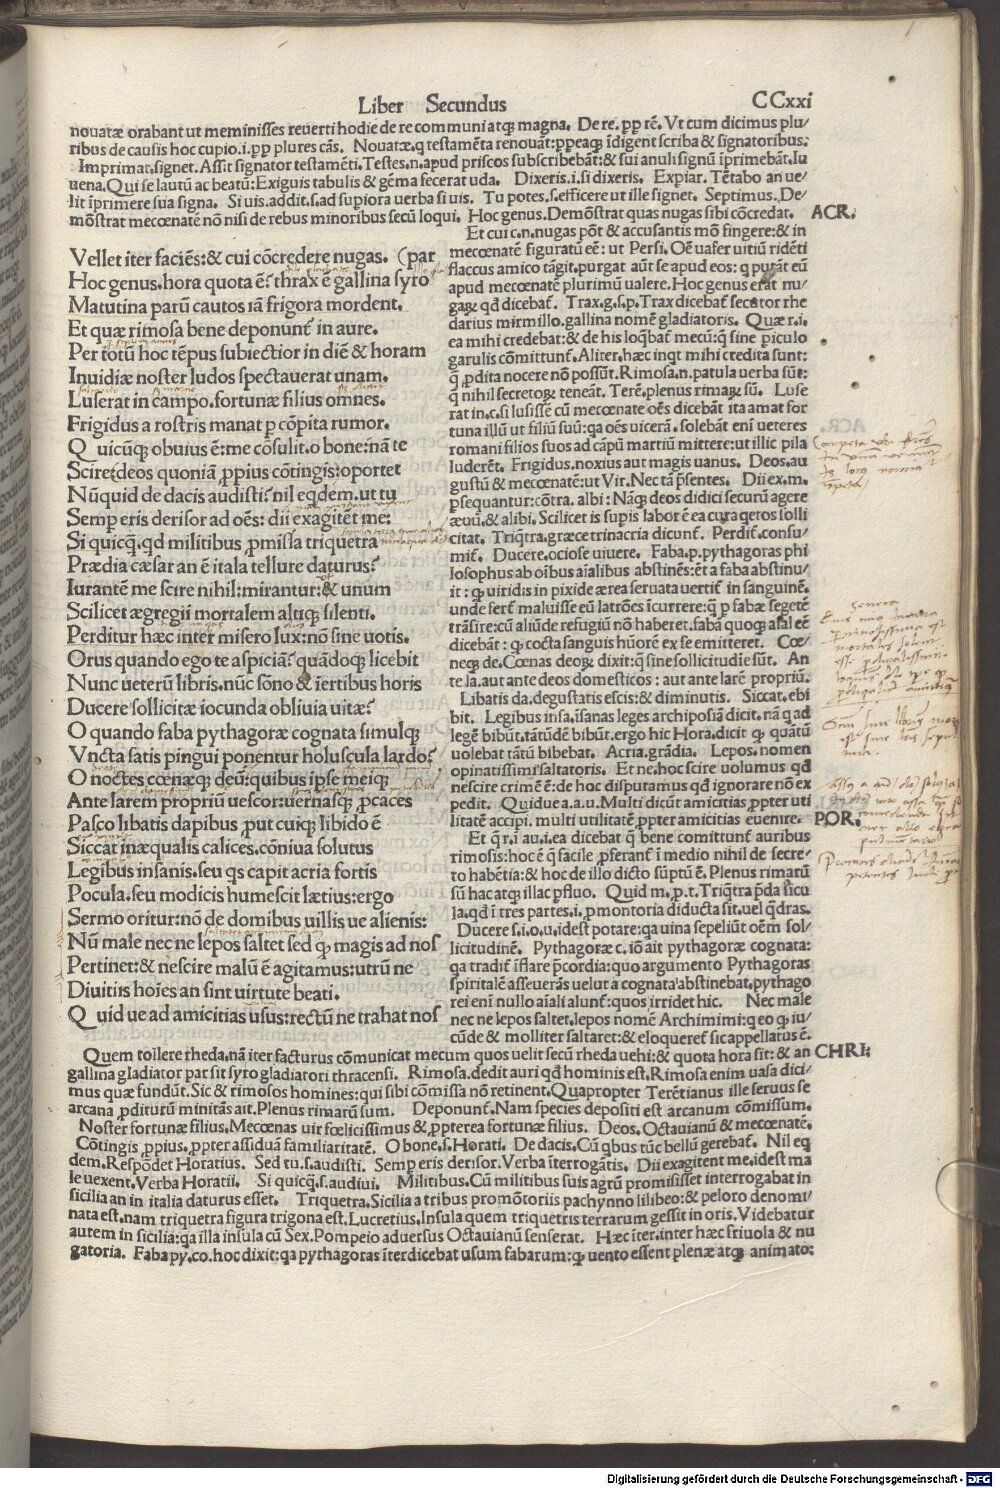 Liber Secundus
CCxxi
nouatæ orabant ut meminisses reuerti hodie de re communi atqꝫ magna. De re. ꝓꝑ rē. Vt cum dicimus plu/
ribus de causis hoc cupio.i.ꝓꝑ plures cās. Nouatæ.q testamēta renouāt: ꝓꝑeaqꝫ īdigent scriba & signatoribus:
Imprimat.signet. Assit signator testamēti. Testes.n.apud priscos subscribebāt: & sui anuli signū īprimebāt. Iu
uena. Qui se lautū ac beatū: Exiguis tabulis & gēma fecerat uda. Dixeris.i.si dixeris. Expiar. Tētabo an ue/
lit īprimere sua signa. Si uis.addit.s.ad supiora uerba si uis. Tu potes.s.efficere ut ille signet. Septimus. De/
mōstrat mecœnatē nō nisi de rebus minoribus secū loqui. Hoc genus. Demōstrat quas nugas sibi cōcredat.
ACR.
Vellet iter faciēs: & cui cōcredere nugas. (par
Hoc genus. hora quota ē? thrax ē gallina syro
Matutina parū cautos iā frigora mordent.
Et quæ rimosa bene deponunt in aure.
Per totū hoc tēpus subiectior in diē & horam
Inuidiæ noster ludos spectauerat unam.
Luserat in campo. fortunæ filius omnes.
Frigidus a rostris manat p cōpita rumor.
Quicūqꝫ obuius ē: me cōsulit. o bone: nā te
Scire: deos quoniā ꝓpius cōtingis: oportet
Nūquid de dacis audisti? nil eqdem. ut tu
Semp eris derisor ad oēs: dii exagitēt me:
Si quicq. qd militibus ꝓmissa triquetra
Prædia cæsar an ē itala tellure daturus?
Iurantē me scire nihil: mirantur: & unum
Scilicet ægregii mortalem altiqꝫ silenti.
Perditur hæc inter misero lux: nō sine uotis.
Orus quando ego te aspiciā? quādoqꝫ licebit
Nunc ueterū libris. nūc sōno & īertibus horis
Ducere sollicitæ iocunda obliuia uitæ?
O quando faba pythagoræ cognata simulqꝫ
Vncta satis pingui ponentur holuscula lardo?
O noctes cœnæqꝫ deū: quibus ipse meiqꝫ
Ante larem propriū uescor: uernasqꝫ ꝓcaces
Pasco libatis dapibus ꝓut cuiqꝫ libido ē
Siccat inæqualis calices. cōniua solutus
Legibus insanis. seu qs capit acria fortis
Pocula. seu modicis humescit lætius: ergo
Sermo oritur: nō de domibus uillis ue alienis:
Nū male nec ne lepos saltet sed qꝫ magis ad nos
Pertinet: & nescire malū ē agitamus: utrū ne
Diuitiis hoīes an sint uirtute beati.
Quid ue ad amicitias usus: rectū ne trahat nos
Et cui c.n. nugas pōt & accusantis mō fingere: & in
mecœnatē figuratū eē: ut Persi. Oē uafer uitiū ridēti
flaccus amico tāgit. purgat aūt se apud eos: q putāt eū
apud mecœnatē plurimū ualere. Hoc genus erāt nu/
gaꝝ qd dicebat. Trax.g.s.p. Trax dicebat secator rhe
darius mirmillo. gallina nomē gladiatoris. Quæ r.i.
ea mihi credebat: & de his loqbat mecū: q sine piculo
garulis cōmittunt. Aliter. hæc inqt mihi credita sunt:
q ꝓdita nocere nō possūt. Rimosa. n. patula uerba sūt:
q nihil secretoꝝ teneāt. Terē. plenus rimaꝝ sū. Luse
rat in. c. si lusissē cū mecœnate oēs dicebāt ita amat for
tuna illū ut filiū suū: qa oēs uicerā. solebāt eni ueteres
romani filios suos ad cāpū martiū mittere: ut illic pila
luderēt. Frigidus. noxius aut magis uanus. Deos. au
gustū & mecœnatē: ut Vir. Nec tā pīsentes. Dii ex. m.
psequantur: cōtra. albi: Nāqꝫ deos didici securū agere
æuū. & alibi. Scilicet is supis labor ē ea cura qetos solli
citat. Triqtra. græce trinacria dicunt. Perdit. consu/
mit. Ducere. ociose uiuere. Faba. p. pythagoras phi
losophus ab oībus aīalibus abstinēs: ēt a faba abstinu/
it: qꝫ uiridis in pixide ærea seruata uertit in sanguinē.
unde fert maluisse eū latrōes īcurrere: q p fabæ segetē
trāsire: cū aliūde refugiū nō haberet. fabā quoqꝫ aīal eē
dicebāt: qꝫ cocta sanguis huōrē ex se emitteret. Cœ/
neqꝫ de. Cœnas deoꝝ dixit: q sine sollicitudie sūt. An
te la. aut ante deos domesticos: aut ante larē propriū.
Libatis da. degustatis escis: & diminutis. Siccat. ebi
bit. Legibus insa. īsanas leges archiposiā dicit. nā q ad
legē bibūt. tātūdē bibūt. ergo hic Hora. dicit qꝫ quātū
uolebat tātū bibebat. Acria. grādia. Lepos. nomen
opinatissimi saltatoris. Et ne. hoc scire uolumus qd
nescire crimē ē: de hoc disputamus qd ignorare nō ex
pedit. Quidue a.a.u. Multi dicūt amicitias ꝓpter uti
litatē accipi. multi utilitatē ꝓpter amicitias euenire.
POR.
Et q r.i au.i.ea dicebat q bene comittunt auribus
rimosis: hoc ē q facile ꝓferant ī medio nihil de secre/
to habētia: & hoc de illo dicto sūptū ē. Plenus rimarū
sū hac atqꝫ illac pfluo. Quid m.p.t. Triqtra pda sicu
la. qd ī tres partes.i.ꝓmontoria diducta sit. uel qdras.
Ducere s.i.o.u. idest potare: qa uina sepeliūt oēm sol/
licitudinē. Pythagoræ c. iō ait pythagoræ cognata:
qa tradit īflare pcordia: quo argumento Pythagoras
spiritalē asseuerās uelut a cognata abstinebat. pythago
rei eni nullo aīali alunt: quos irridet hic. Nec male
nec ne lepos saltet. lepos nomē Archimimi: q eo qꝫ iu/
cūde & molliter saltaret: & eloqueret sic appellatus ē.
Quem tollere rheda. nā iter facturus cōmunicat mecum quos uelit secū rheda uehi: & quota hora sit: & an
CHRI:
gallina gladiator par sit syro gladiatori thracensi. Rimosa. dedit auri qd hominis est. Rimosa enim uasa dici/
mus quæ fundūt. Sic & rimosos homines: qui sibi cōmissa nō retinent. Quapropter Terētianus ille seruus se
arcana ꝓditurū minitās ait. Plenus rimarū sum. Deponunt. Nam species depositi est arcanum cōmissum.
Noster fortunæ filius. Mecœnas uir fœlicissimus & ꝓpterea fortunæ filius. Deos. Octauianū & mecœnatē.
Cōtingis ꝓpius. ꝓpter assiduā familiaritatē. O bone. s. Horati. De dacis. Cū qbus tūc bellū gerebat. Nil eq
dem. Respōdet Horatius. Sed tu. s. audisti. Semp eris derisor. Verba īterrogātis. Dii exagitent me. idest ma
le uexent. Verba Horatii. Si quicq. s. audiui. Militibus. Cū militibus suis agrū promisisset interrogabat in
sicilia an in italia daturus esset. Triquetra. Sicilia a tribus promōtoriis pachynno lilibeo: & peloro denomi/
nata est. nam triquetra figura trigona est. Lucretius. Insula quem triquetris terrarum gessit in oris. Videbatur
autem in sicilia: qa illa insula cū Sex. Pompeio aduersus Octauianū senserat. Hæc iter. inter hæc friuola & nu
gatoria. Faba py. co. hoc dixit: qa pythagoras īterdicebat usum fabarum: qꝫ uento essent plenæ atqꝫ animato:
Digitalisierung gefördert durch die Deutsche Forschungsgemeinschaft - DFG